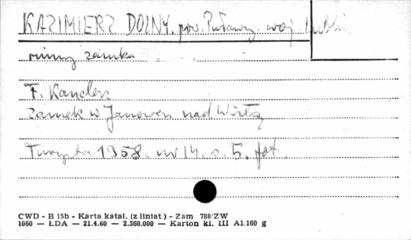 KAZIMIERZ DOLNY. pow. Puławy. woj. Lublin
ruiny zamku
F. Kanclerz
Zamek w Janowcu nad Wisłą
Turysta 1958. nr 14. s. 5. fot.
CWD - B 15b - Karta katal. (z liniat.) - Zam 788/ZW
1060 — ŁDA — 21.4.60 — 2.360.000 — Karton kl. III A1.160 g